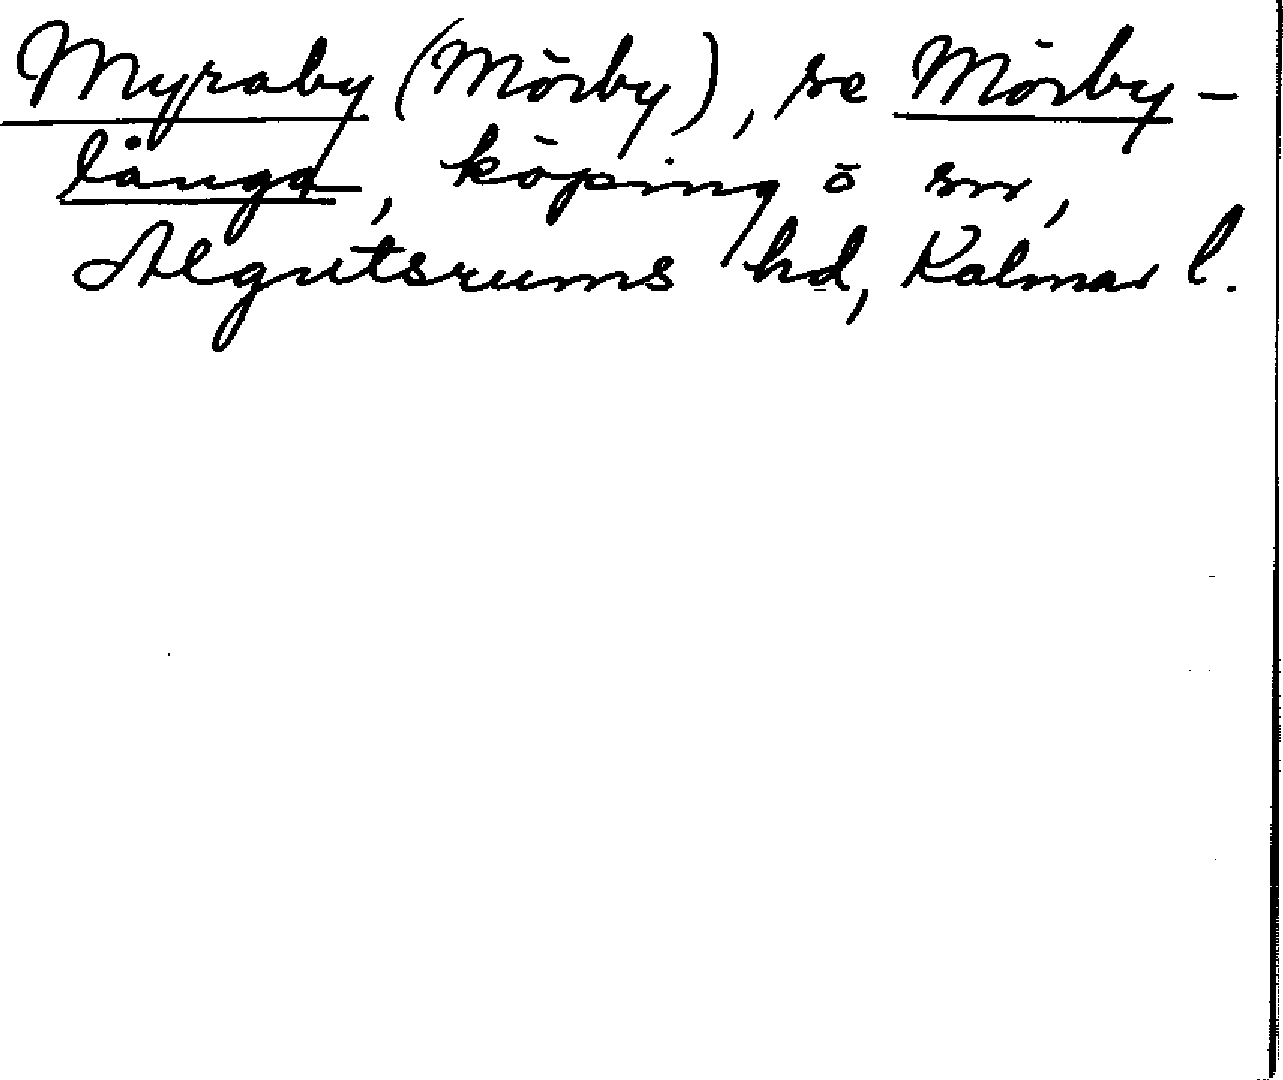 Myraby (Mörby), se Mörby-
långa, köping o sn,
Algutsrums hd, Kalmar l.